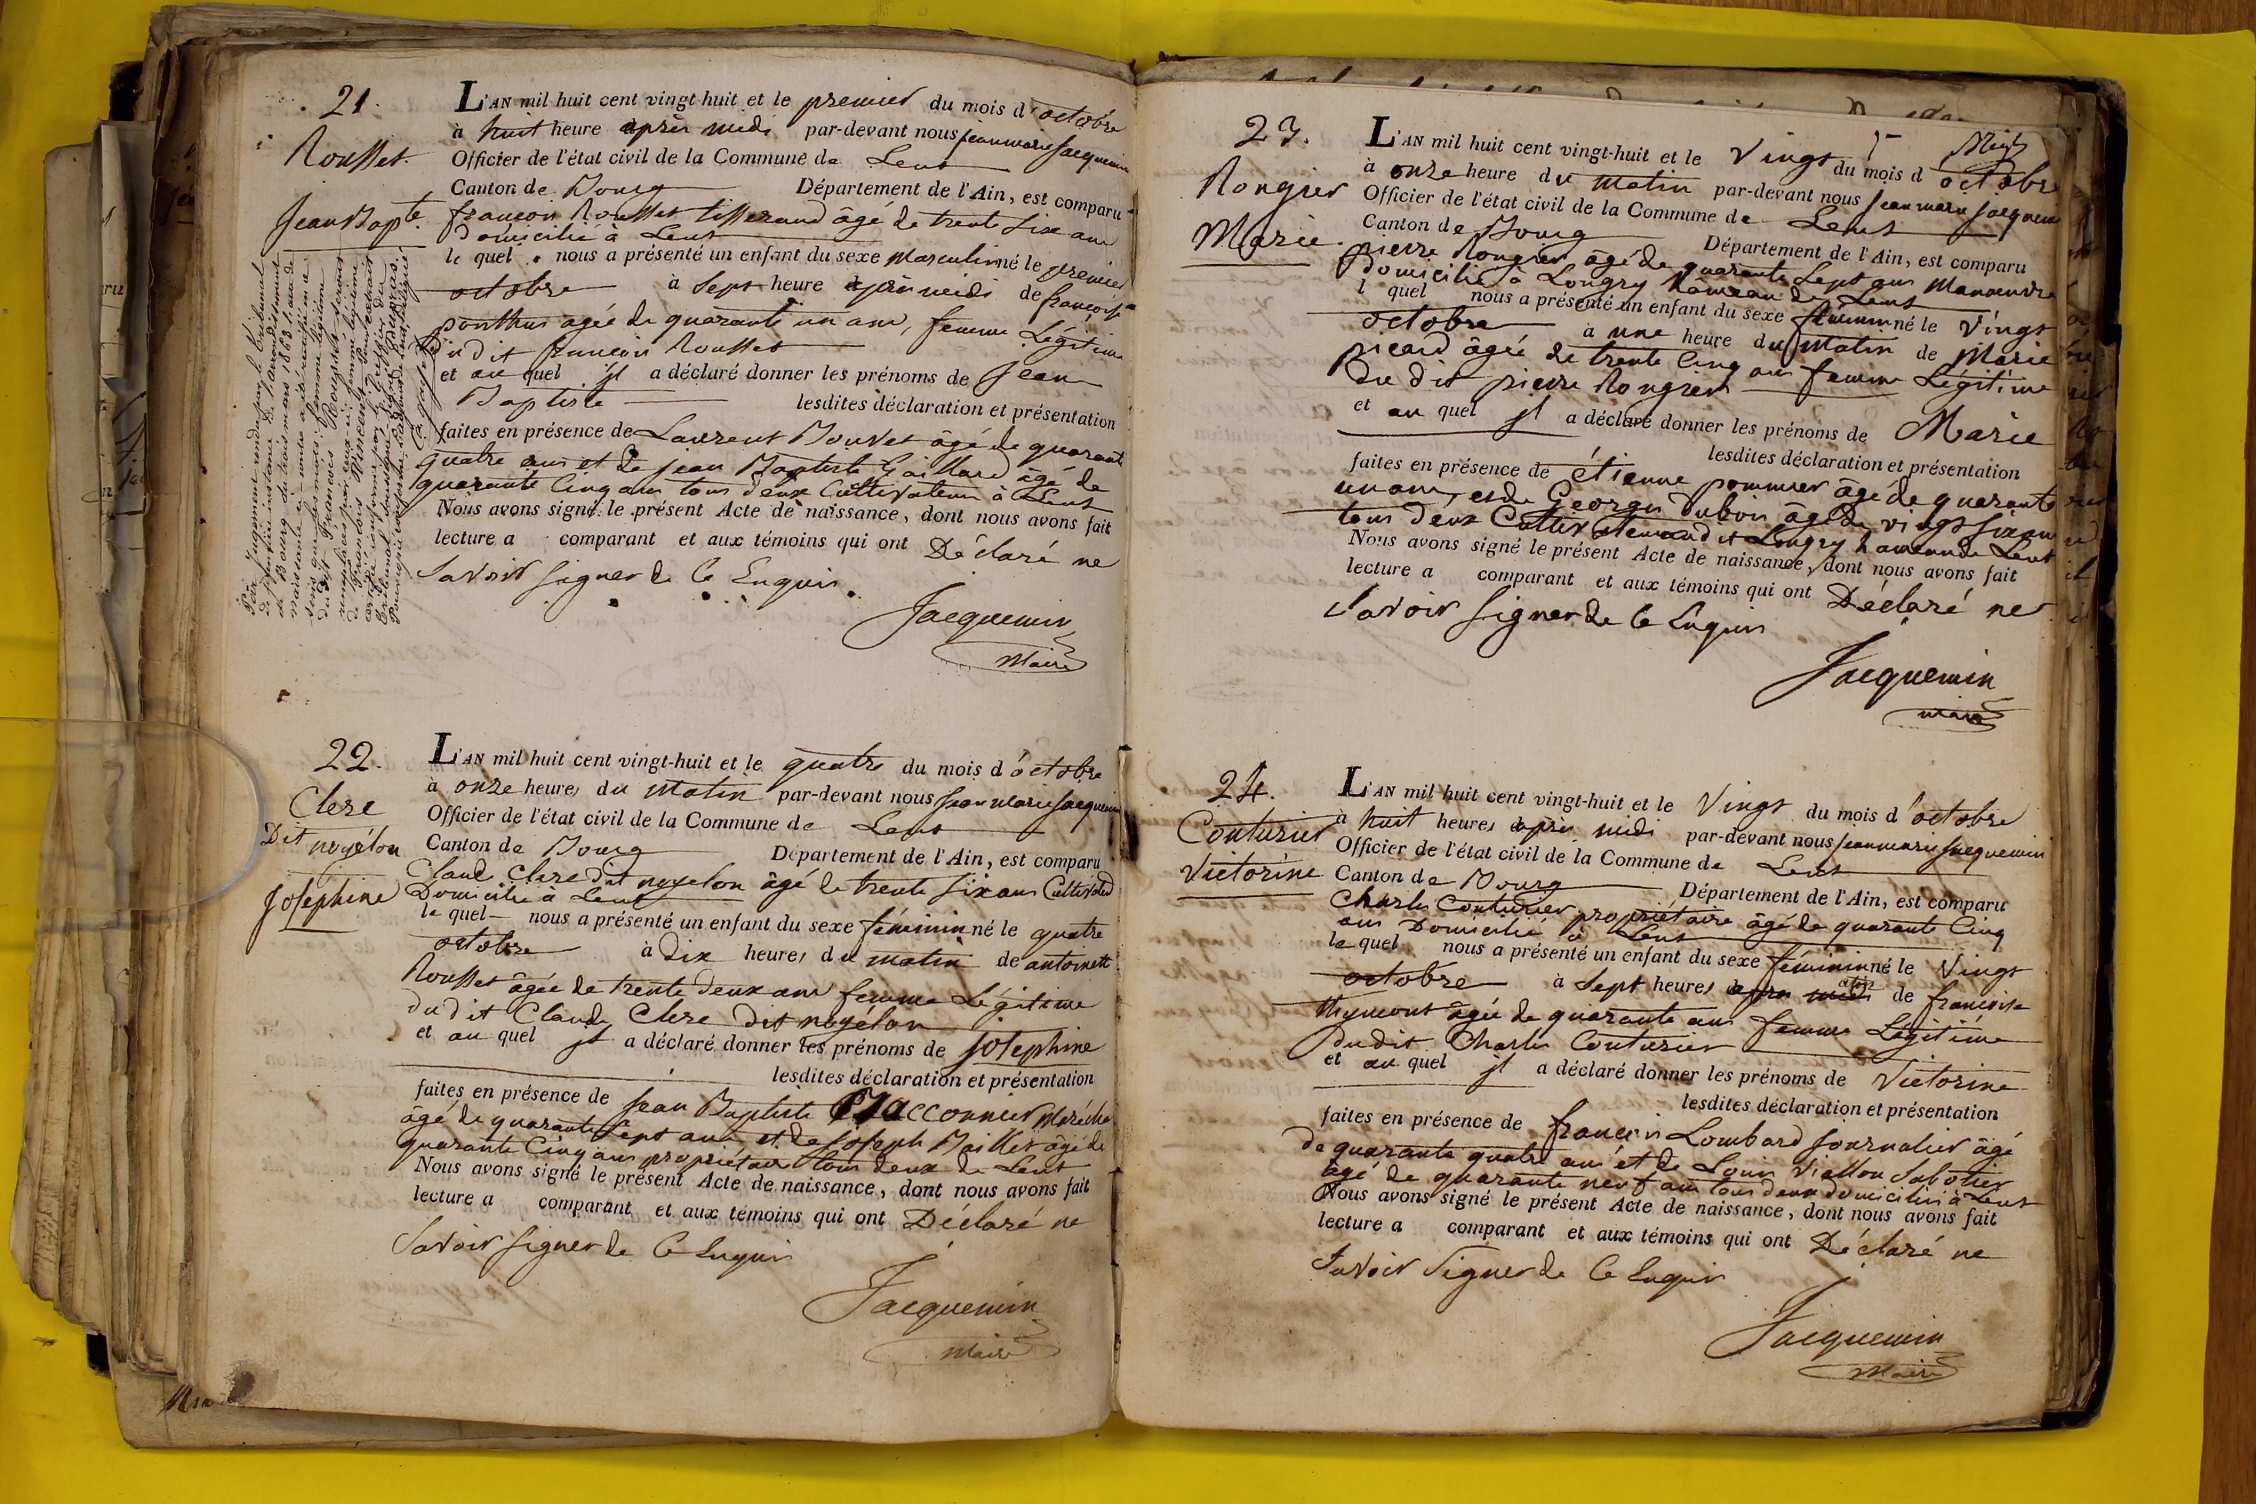 21.
Rousset
Jean Bapte
L'AN mil huit cent vingt-huit et le premier du mois d'octobre
à huit heure après midi par-devant nous jean marie Jacquemin
Officier de l'état civil de la Commune de Lent
Canton de Bourg Département de l'Ain, est comparu
françois Rousset tisserand âgé de trente six ans
domicilié à Lent
le quel nous a présenté un enfant du sexe masculin né le premier
octobre à sept heure après midi de françoise
ponthus agée de quarante un ans, femme Légitime
du dit françois Rousset
et au quel jl a déclaré donner les prénoms de Jean
Baptiste lesdites déclaration et présentation
faites en présence de Laurent Bouvet âgé de quarante
quatre ans et de jean Baptiste Gaillard âgé de
quarante Cinq ans tous deux Cultivateurs à Lent
Nous avons signé le présent Acte de naissance, dont nous avons fait
lecture a comparant et aux témoins qui ont Déclaré ne
savoir signer de Ce Enquis.
Jacquemin
Maire
Par Jugement rendu par le Tribunal
de première instance de l'arrondissement
de Bourg du trois mars 1863
du dit François Rousset
de François Vincent
22.
Clere
Dit noyélon
Josephine
L'AN mil huit cent vingt-huit et le quatre du mois d'octobre
à onze heures du matin par-devant nous jean marie Jacquemin
Officier de l'état civil de la Commune de Lent
Canton de Bourg Département de l'Ain, est comparu
Claude Clere dit noyelon âgé de trente six ans Cultivateur
Domicilié à Lent
le quel nous a présenté un enfant du sexe féminin né le quatre
octobre à dix heures du matin de antoinette
Rousset âgée de trente deux ans femme Légitime
du dit Claude Clere dit noyélon
et au quel jl a déclaré donner les prénoms de josephine
lesdites déclaration et présentation
faites en présence de jean Baptiste Macconnier Maréchal
âgé de quarante sept ans et de joseph Baillet âgé de
quarante Cinq ans propriétaire tous deux de Lent
Nous avons signé le présent Acte de naissance, dont nous avons fait
lecture a comparant et aux témoins qui ont Déclaré ne
savoir signer de Ce Enquis
Jacquemin
Maire
23.
Rongier
Marie
L'AN mil huit cent vingt-huit et le Vingt du mois d octobre
à onze heure du matin par-devant nous jean marie Jacquemin
Officier de l'état civil de la Commune de Lent
Canton de Bourg Département de l'Ain, est comparu
pierre Rongier âgé de quarante sept ans Manoeuvre
domicilié à Longry hameau de Lent
l quel nous a présenté un enfant du sexe féminin né le Vingt
octobre à une heure du matin de Marie
picard âgée de trente Cinq ans femme Légitime
du dit pierre Rongier
et au quel jl a déclaré donner les prénoms de Marie
lesdites déclaration et présentation
faites en présence de étienne pommier âgé de quarante
un ans, et de Georges Dubois âgé de vingt six ans
tous deux Cultivateurs audit Longry hameau de Lent
Nous avons signé le présent Acte de naissance, dont nous avons fait
lecture a comparant et aux témoins qui ont Déclaré ne
savoir signer de Ce Enquis
Jacquemin
maire
24.
Couturier
Victorine
L'AN mil huit cent vingt-huit et le Vingt du mois d'octobre
à huit heures après midi par-devant nous jean marie Jacquemin
Officier de l'état civil de la Commune de Lent
Canton de Bourg Département de l'Ain, est comparu
Charles Couturier propriétaire âgé de quarante Cinq
ans Domicilié à Lent
le quel nous a présenté un enfant du sexe féminin né le Vingt
octobre à sept heures de françoise
âgée de quarante ans femme Légitime
du dit Charles Couturier
et au quel jl a déclaré donner les prénoms de Victorine
lesdites déclaration et présentation
faites en présence de françois Lombard journalier âgé
de quarante quatre ans et de Louis Viallon Sabotier
âgé de quarante neuf ans tous deux domiciliés à Lent
Nous avons signé le présent Acte de naissance, dont nous avons fait
lecture a comparant et aux témoins qui ont Déclaré ne
savoir signer de Ce Enquis
Jacquemin
Maire